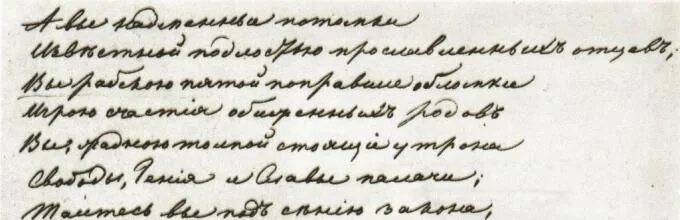 А вы надменные потомки
Извѣстной подлостью прославленныхъ отцевъ;
Вы рабскою пятой поправшие обломки
Игрою счастія обиженныхъ родовъ
Вы, жадною толпой стоящіе у трона
Свободы, Генія и Славы палачи;
Таитесь вы подъ сѣнію закона,